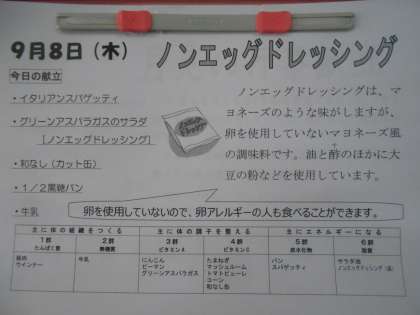 9月8日（木） ノンエッグドレッシング
今日の献立
・イタリアンスパゲッティ
・グリーンアスパラガスのサラダ
［ノンエッグドレッシング］
・和なし（カット缶）
・1/2黒糖パン
・牛乳
ノンエッグドレッシングは、マ
ヨネーズのような味がしますが、
卵を使用していないマヨネーズ風
の調味料です。油と酢のほかに大
豆の粉などを使用しています。
卵を使用していないので、卵アレルギーの人も食べることができます。
主に体の組織をつくる 主に体の調子を整える 主にエネルギーになる
1群 2群 3群 4群 5群 6群
たんぱく質 無機質 ビタミンA ビタミンC 炭水化物 脂質
豚肉 牛乳 にんじん たまねぎ パン サラダ油
ウインナー ピーマン マッシュルーム スパゲティ
グリーンアスパラガス トマトピューレ
コーン
和なし缶